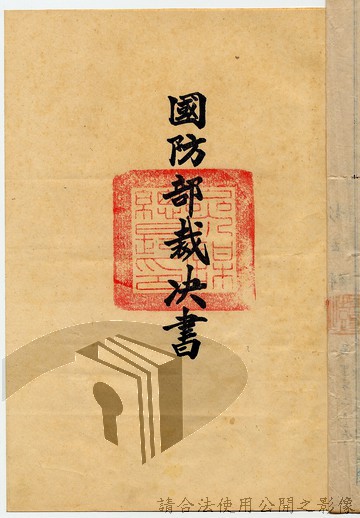 國防部裁決書
請合法使用公開之影像